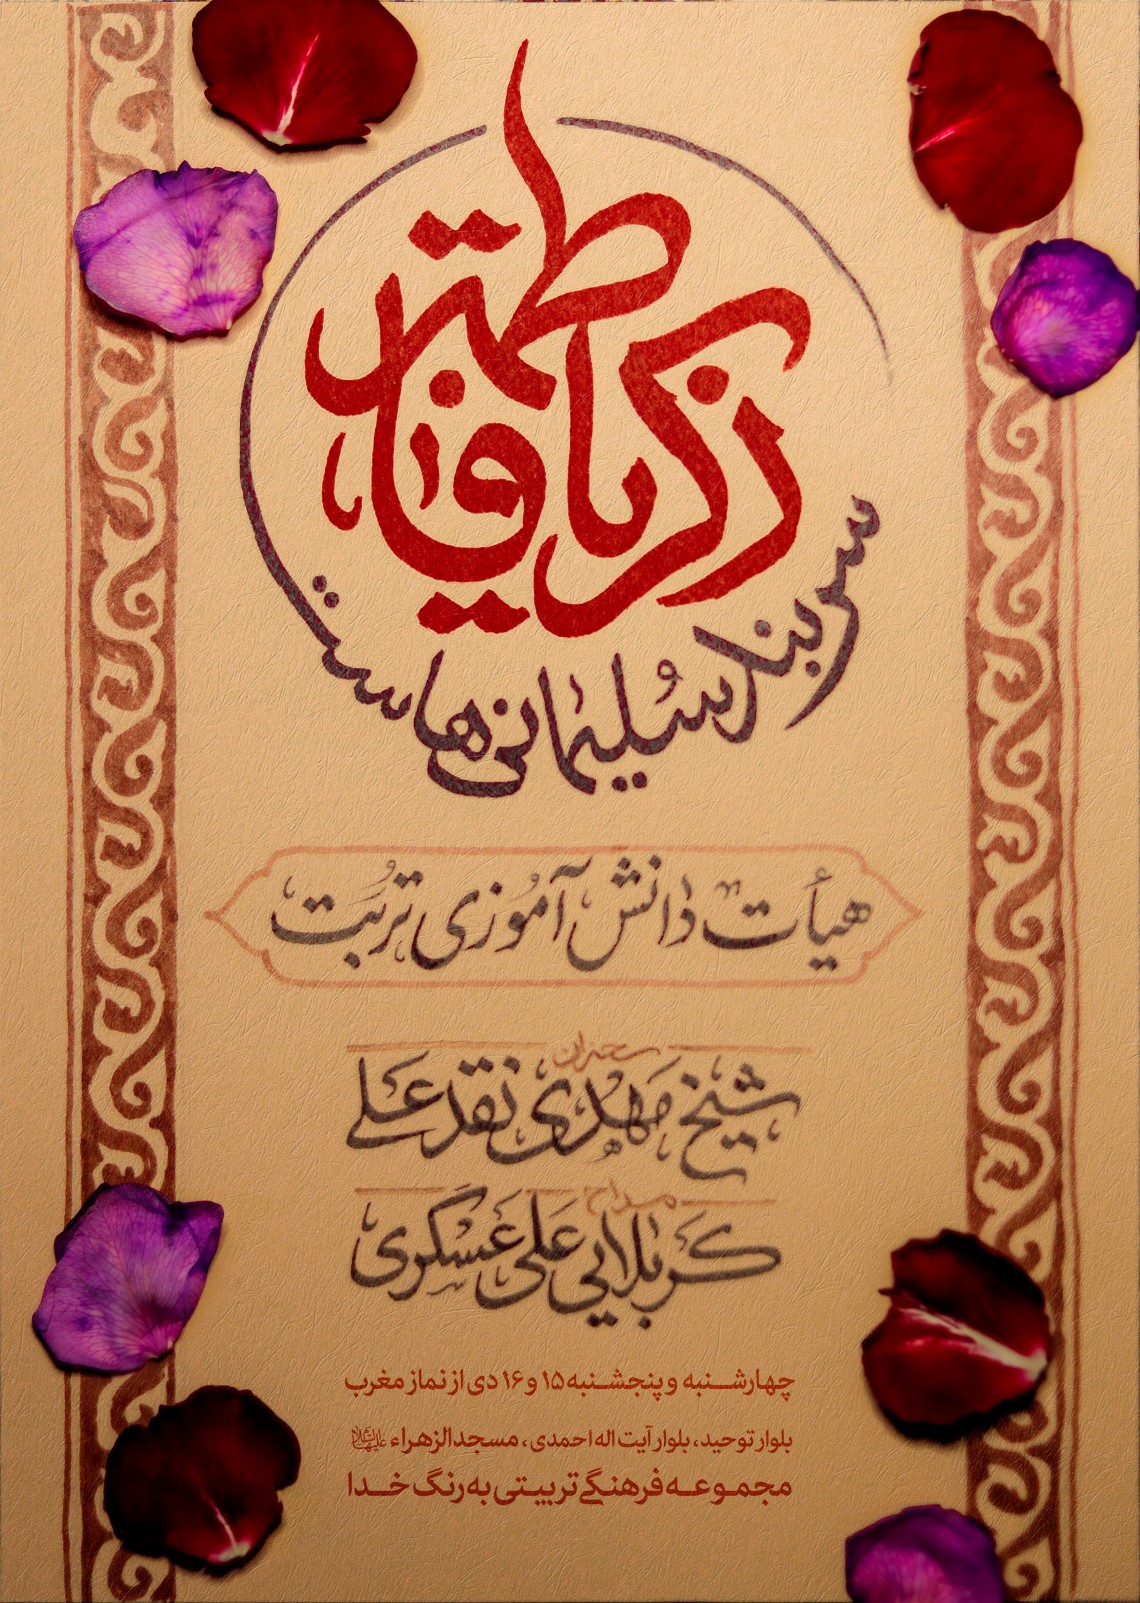 ذکر یا فاطمة
سربند سلیمانی هاست
هیأت دانش آموزی تربت
سخنران
شیخ مهدی نقدعلی
مداح
کربلایی علی عسگری
چهارشنبه و پنجشنبه ۱۵ و ۱۶ دی از نماز مغرب
بلوار توحید، بلوار آیت اله احمدی، مسجد الزهراء علیهاالسلام
مجموعه فرهنگی تربیتی به رنگ خدا